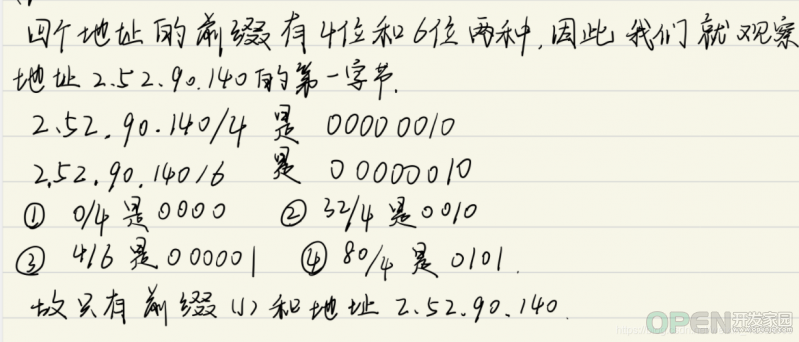 四个地址的前缀有4位和6位两种,因此我们就观察
地址2.52.90.140的第一字节.
2.52.90.140/4 是 00000010
2.52.90.140/6 是 00000010
① 0/4是0000 ② 32/4是0010
③ 4/6是000001 ④ 80/4是0101.
故只有前缀(1)和地址2.52.90.140.
OPEN开发家园